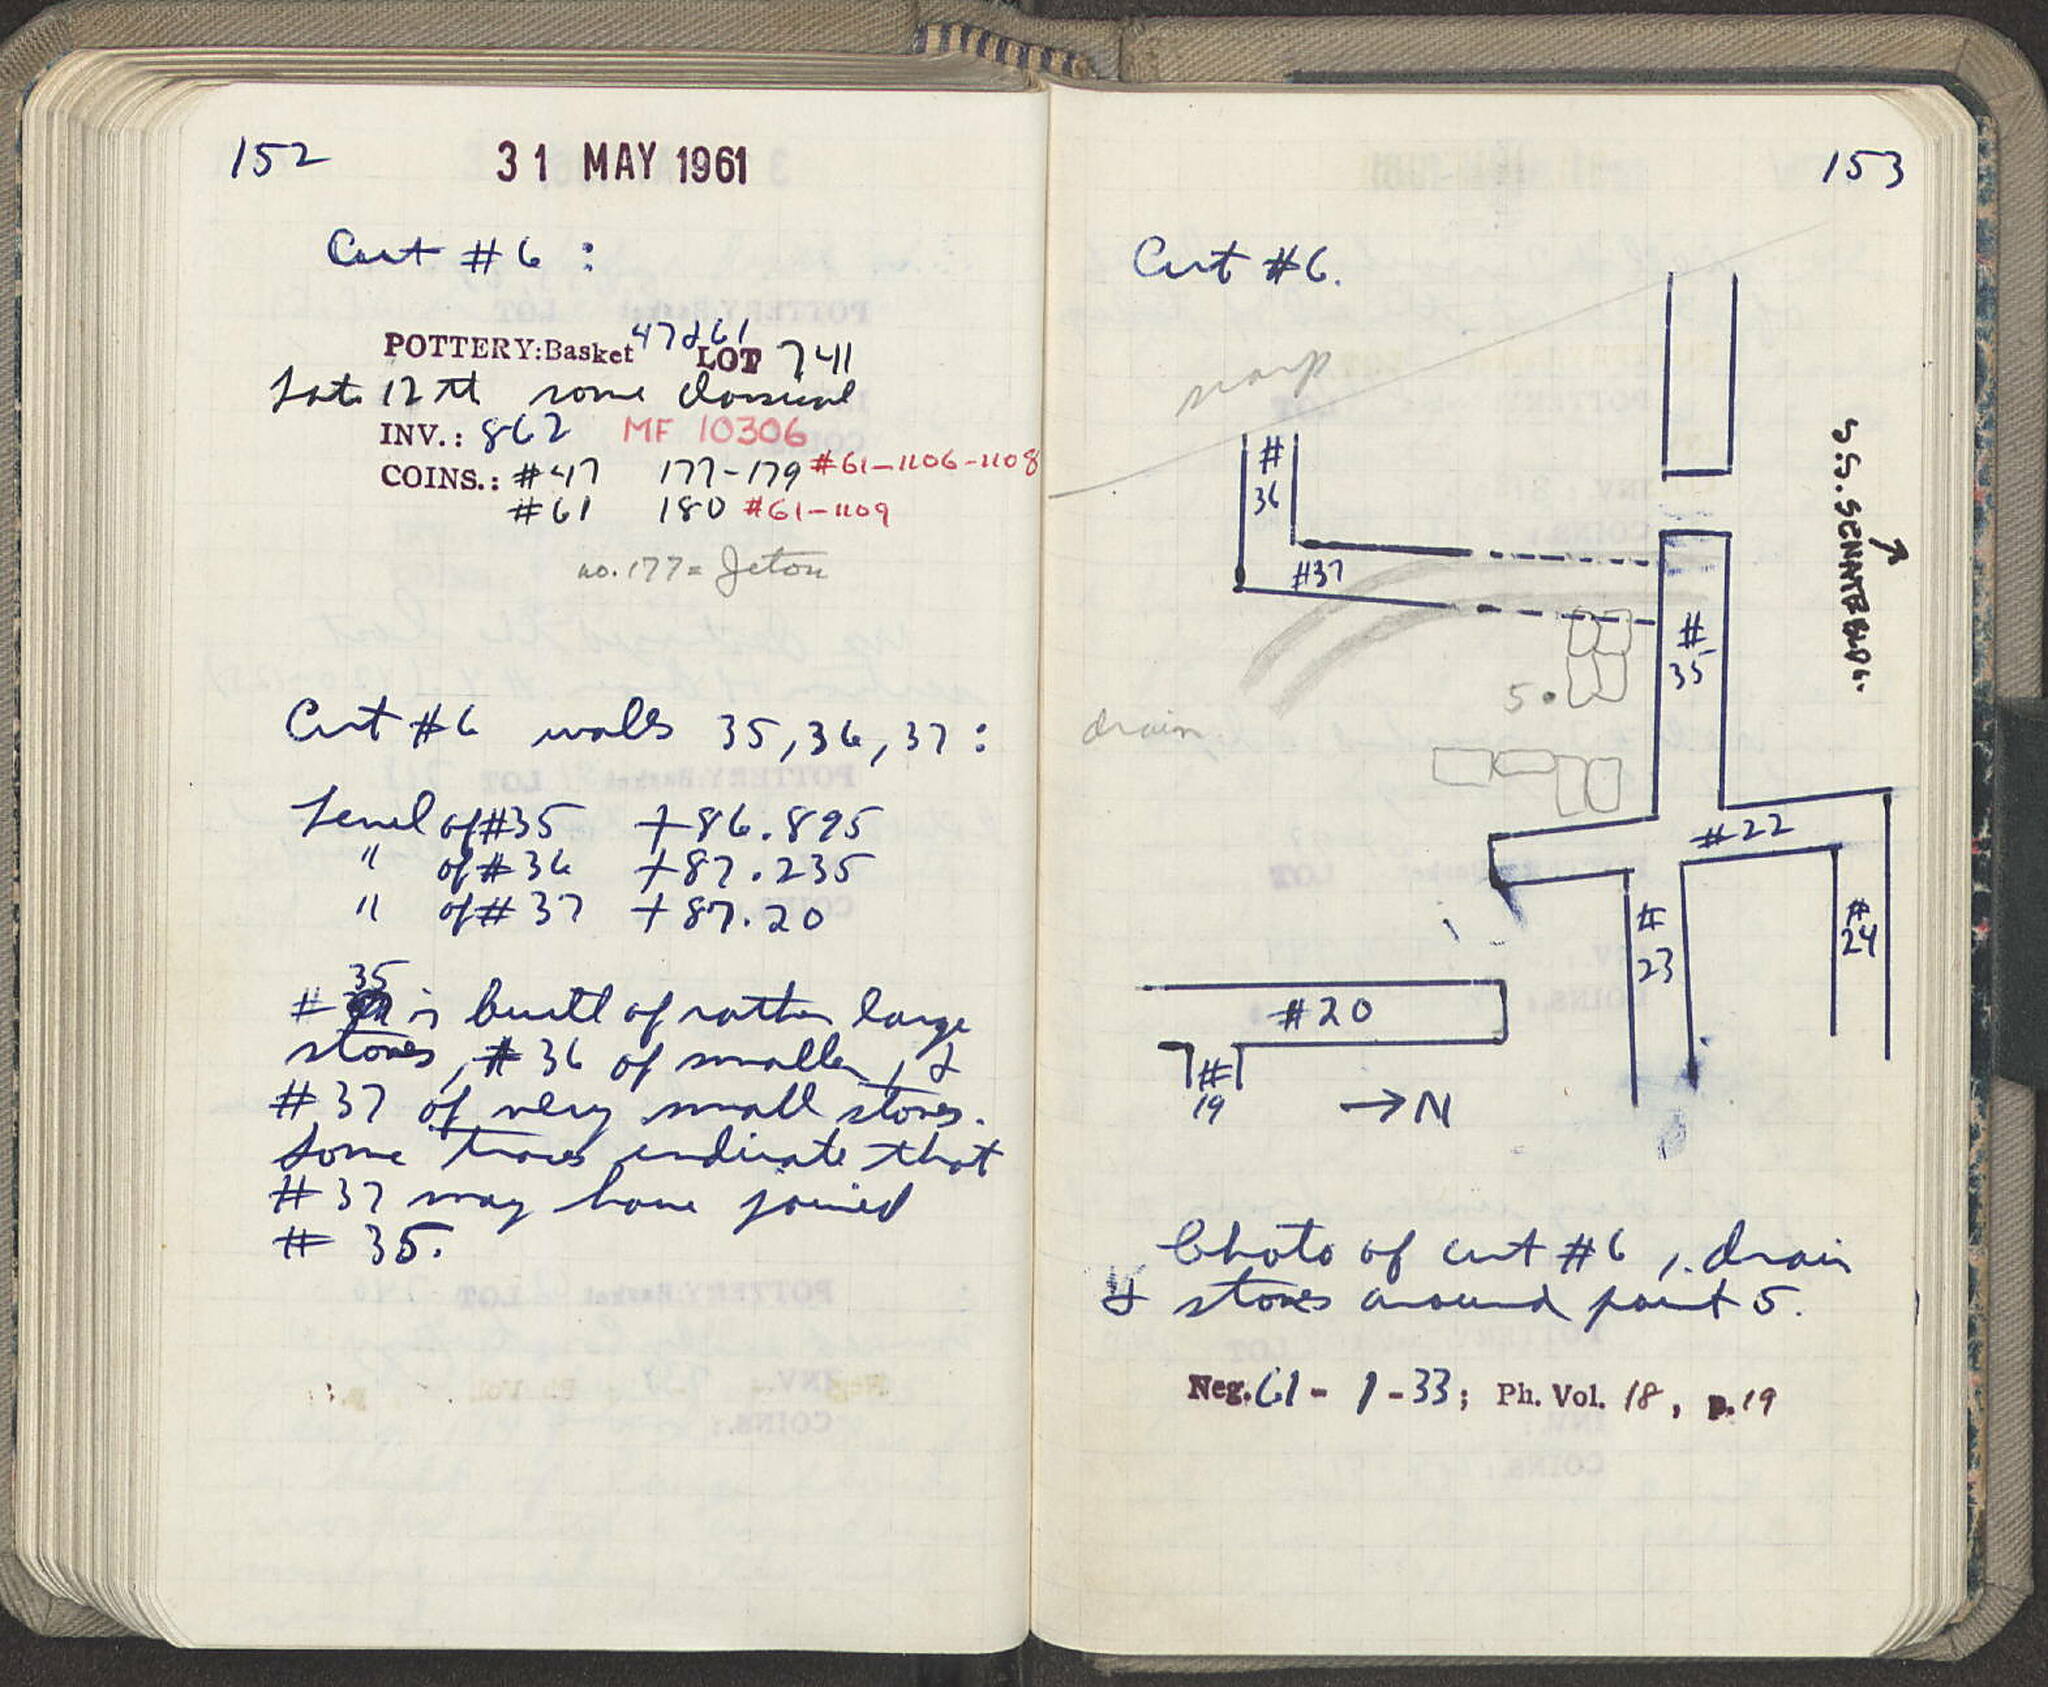 152
31 MAY 1961
Cut #6 :
POTTERY:Basket 47&61 LOT 741
Late 12th some classical
INV.: 862 MF 10306
COINS.: #47 177-179 #61-1106-1108
#61 180 #61-1109
no. 177 = Jeton
Cut #6 walls 35, 36, 37 :
Level of #35 +86.895
" of #36 +87.235
" of #37 +87.20
35
# is built of rather large
stones, #36 of smaller, &
#37 of very small stones.
Some traces indicate that
#37 may have joined
# 35.
153
Cut #6.
scarp
S.S. SENATE BLDG.
#
36
#37
#
35
5.
drain
#22
#
23
#
24
#20
#
19
→N
Photo of cut #6, drain
& stones around point 5.
Neg. 61 - 1 - 33; Ph. Vol. 18, p. 19